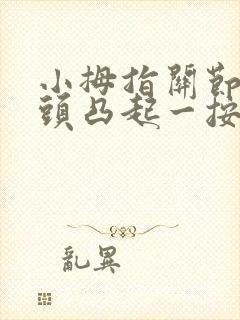 小拇指關節
頭凸起一按
亂異